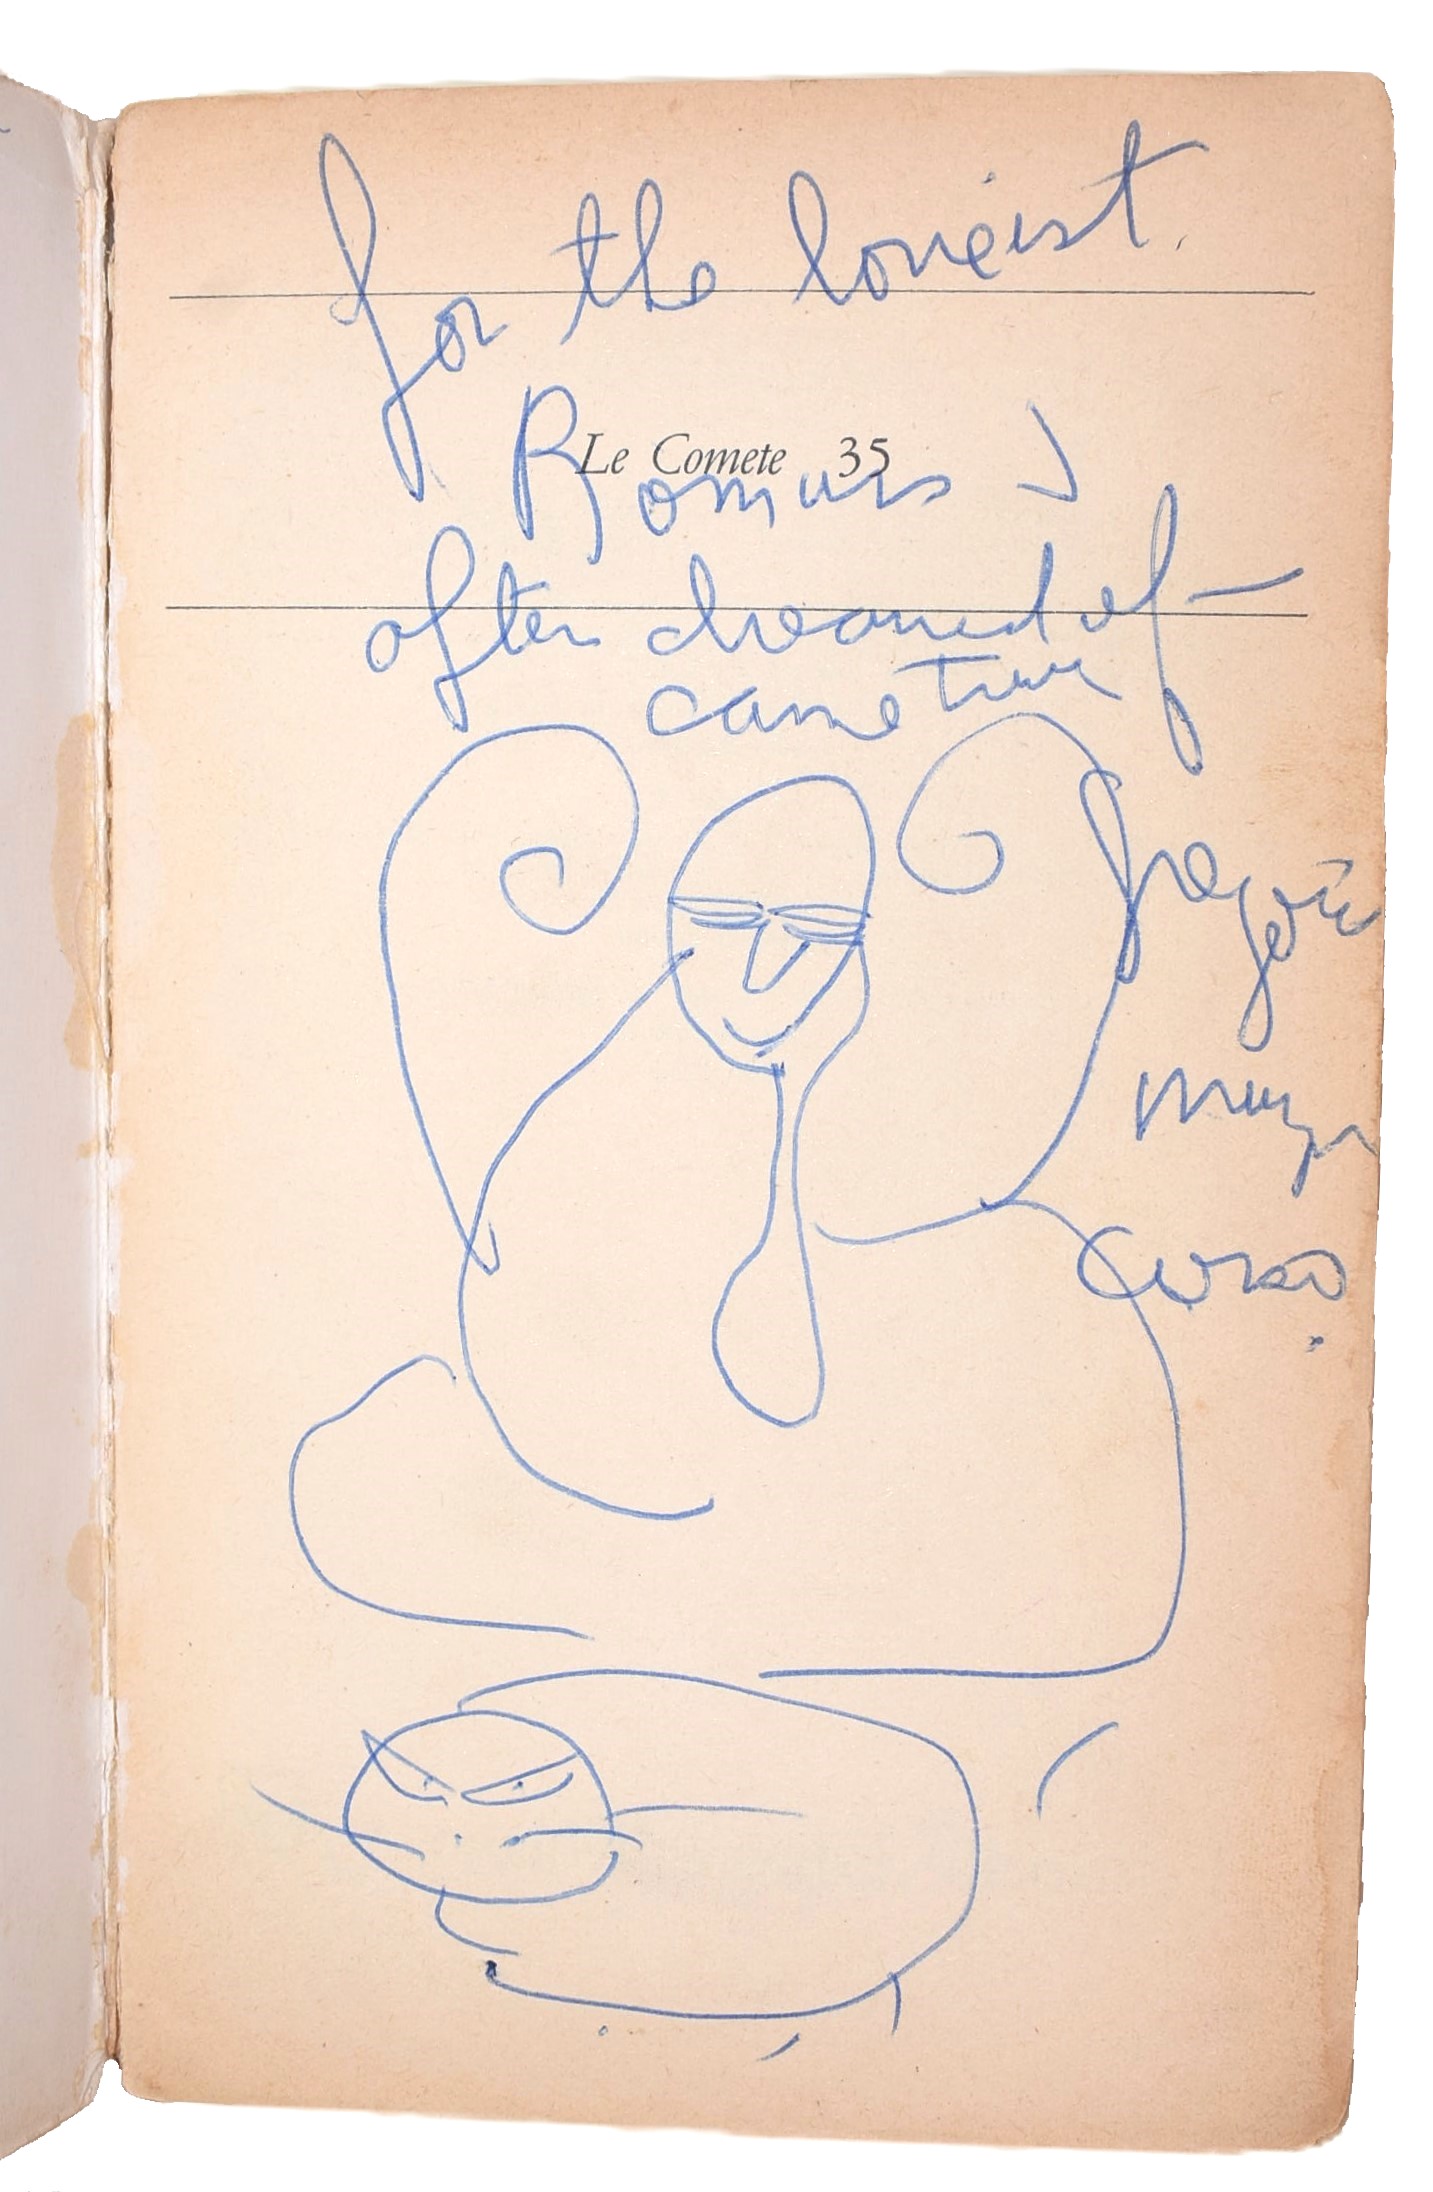 for the loveist.
Le Comete 35
Romans
often dreamed of —
came true
Gregorio
Corso